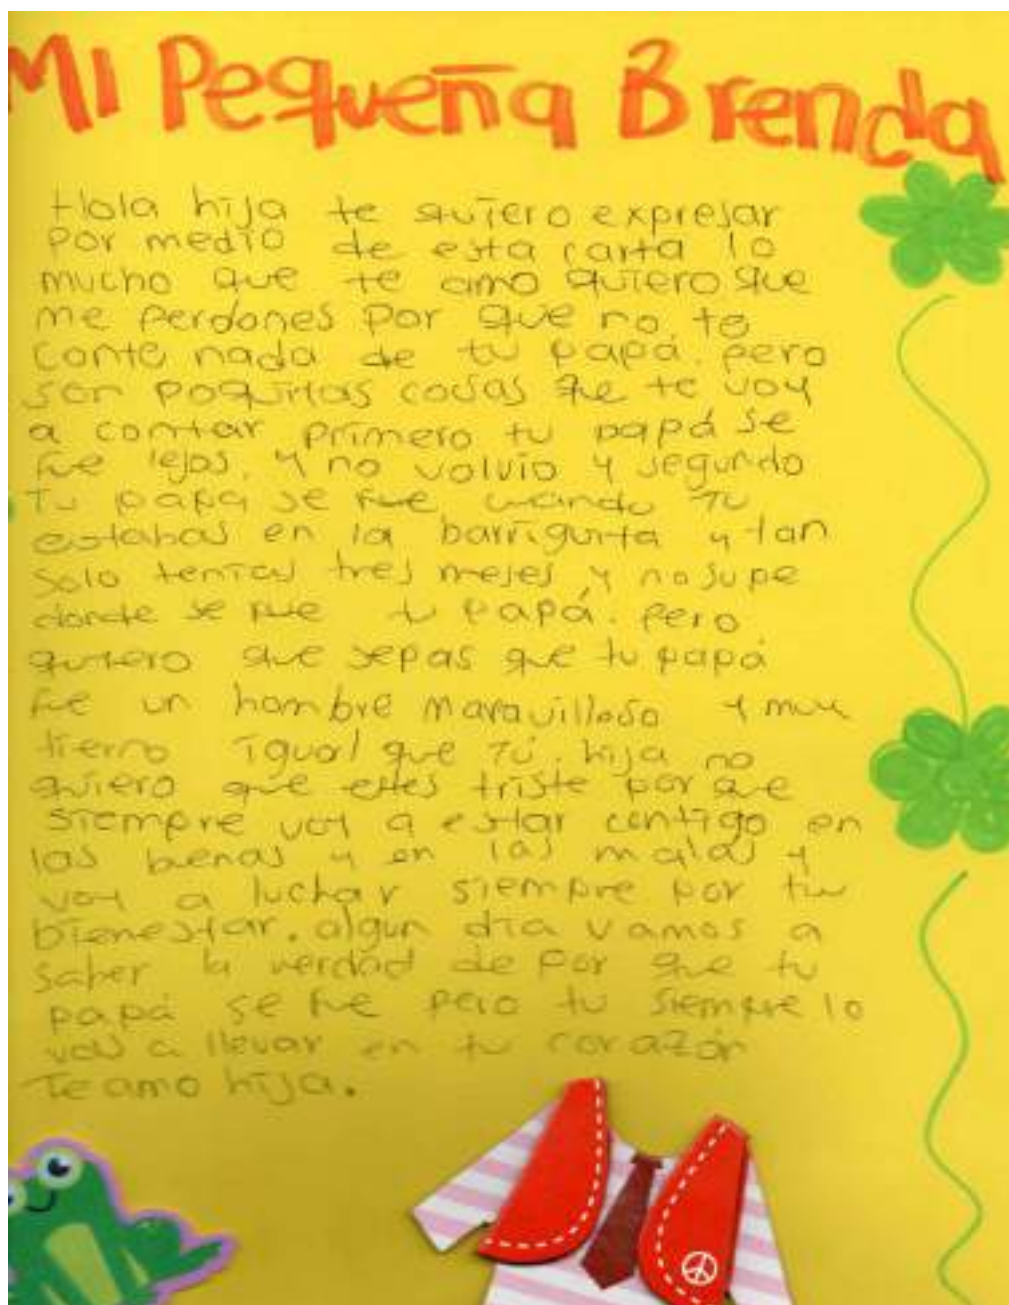 Mi Pequeña Brenda
Hola hija te quiero expresar
por medio de esta carta lo
mucho que te amo quiero que
me perdones por que no te
conte nada de tu papá. pero
son poquitas cosas que te voy
a contar primero tu papá se
fue lejos, y no volvio y segundo
Tu papá se fue cuando tu
estabas en la barriguita y tan
solo tenias tres meses y no supe
donde se fue tu papá. pero
quiero que sepas que tu papá
fue un hombre maravilloso y muy
tierno igual que Tú. hija no
quiero que estes triste por que
siempre voy a estar contigo en
las buenas y en las malas y
voy a luchar siempre por tu
bienestar. algun dia vamos a
saber la verdad de por que tu
papá se fue pero tu siempre lo
vas a llevar en tu corazón
Te amo hija.